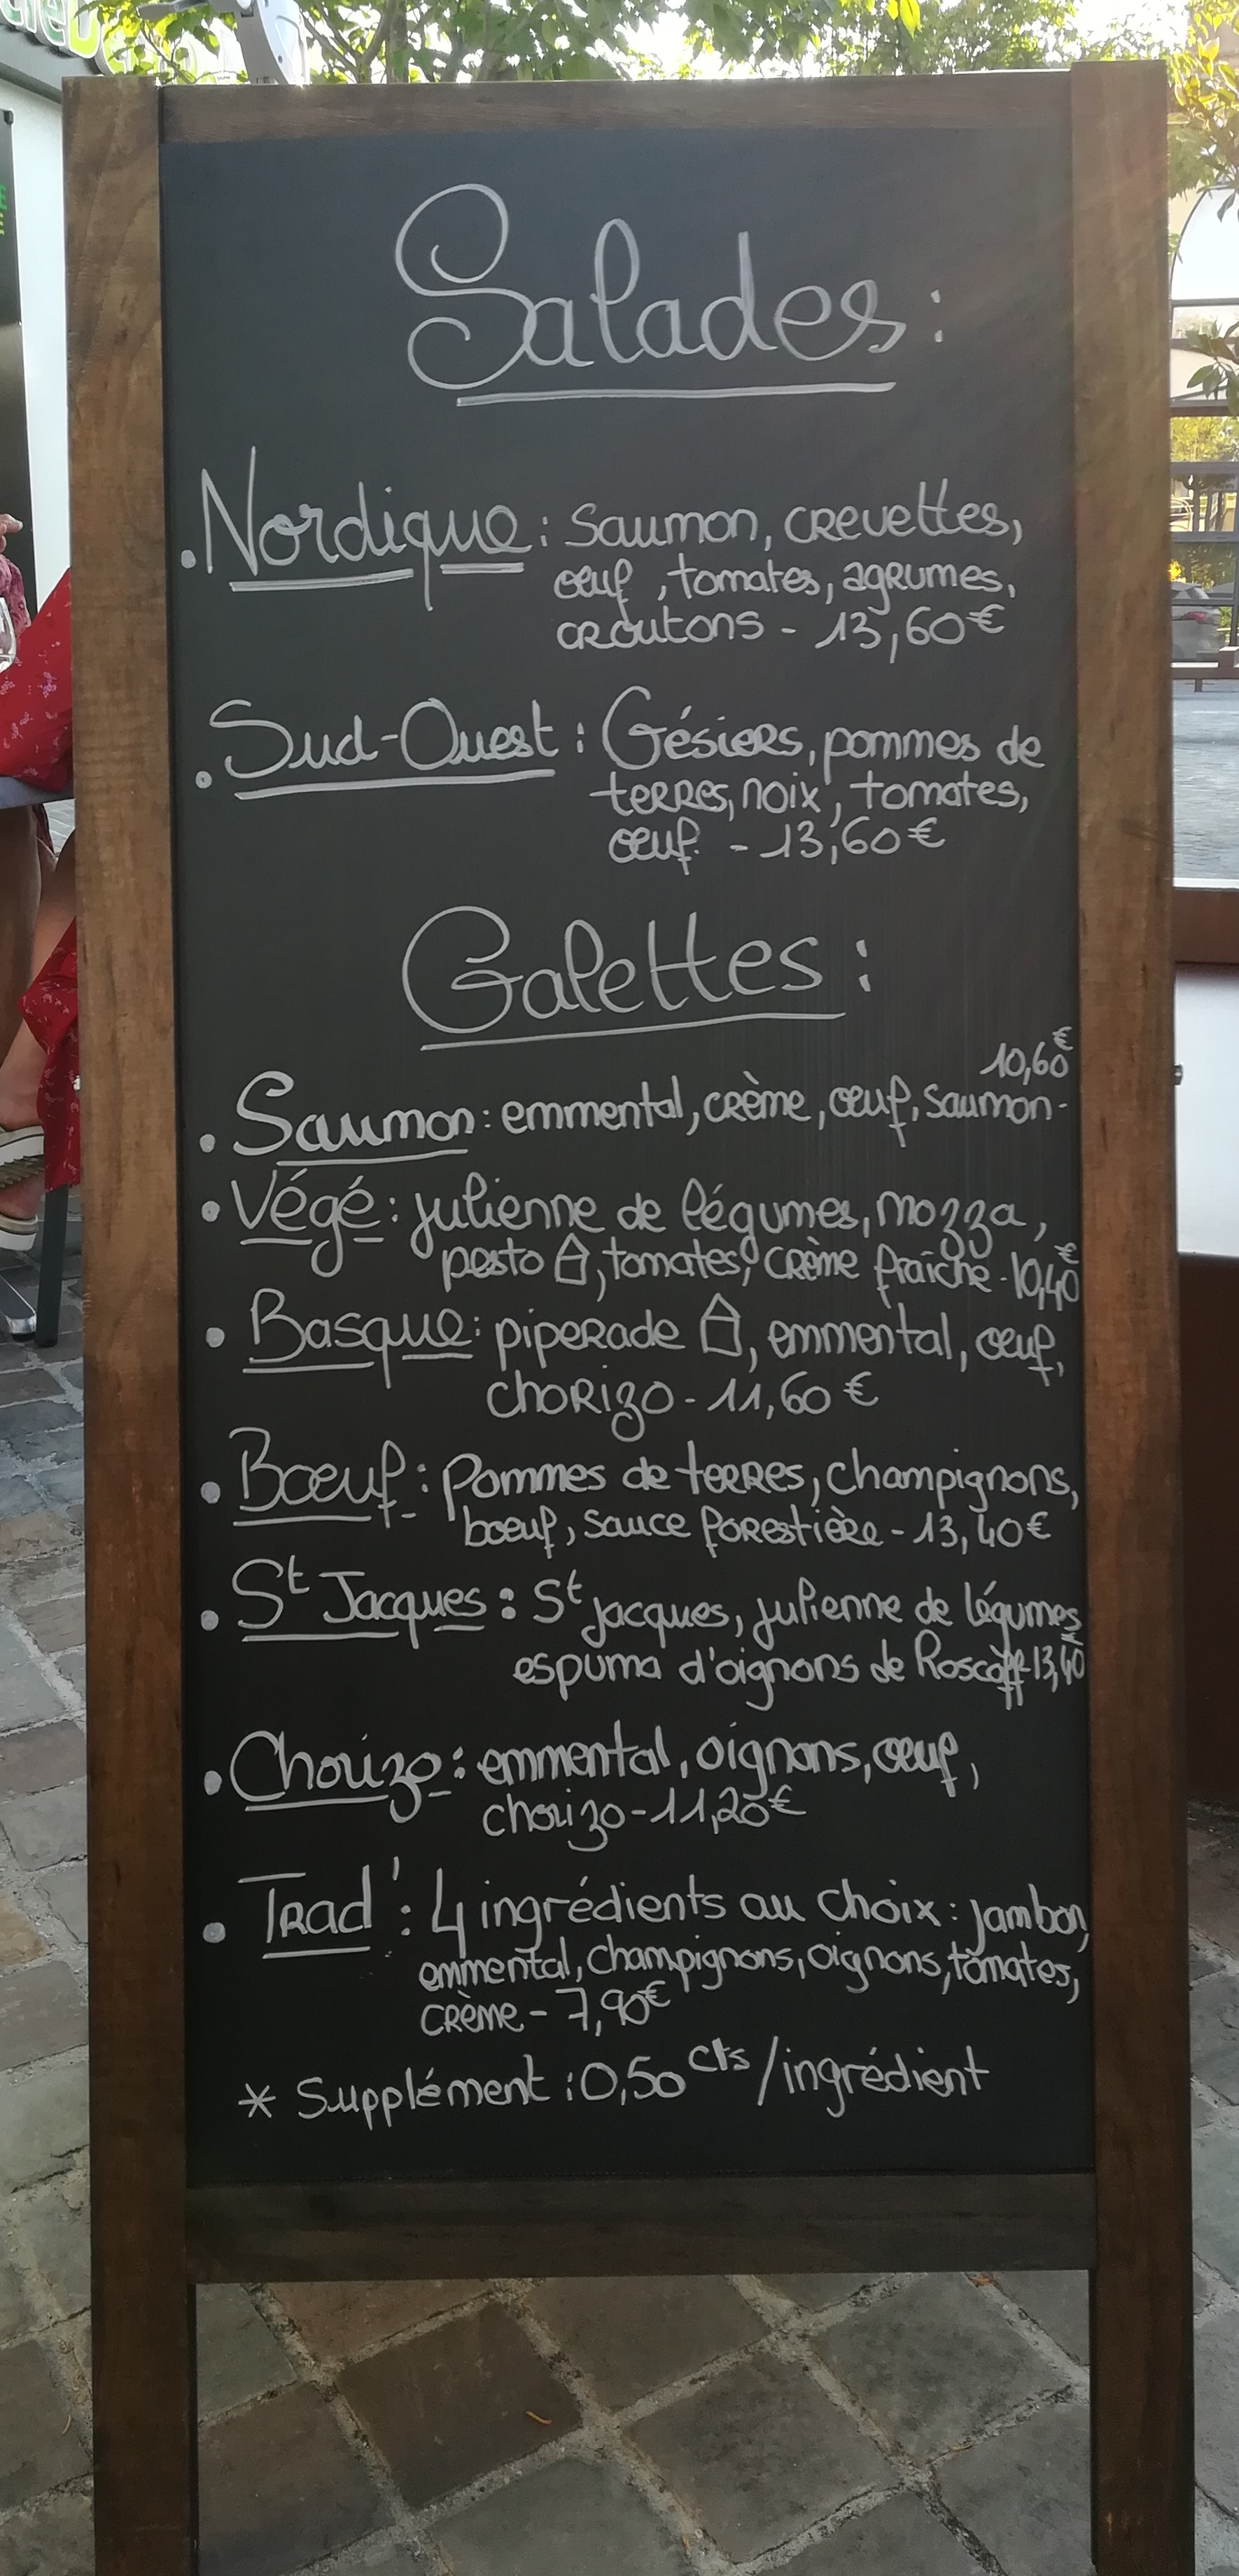 Salades :
• Nordique : Saumon, crevettes,
œuf, tomates, agrumes,
croutons - 13,60€
• Sud-Ouest : Gésiers, pommes de
terres, noix, tomates,
œuf. - 13,60€
Galettes :
10,60€
• Saumon : emmental, crème, œuf, saumon -
• Végé : julienne de légumes, mozza,
pesto ⌂, tomates, crème fraîche - 10,40€
• Basque : piperade ⌂, emmental, œuf,
chorizo - 11,60€
• Bœuf : Pommes de terres, champignons,
bœuf, sauce forestière - 13,40€
• St Jacques : St jacques, julienne de légumes
espuma d'oignons de Roscoff - 13,40€
• Chorizo : emmental, oignons, œuf,
chorizo - 11,20€
• Trad' : 4 ingrédients au choix : jambon,
emmental, champignons, oignons, tomates,
crème - 7,90€
* Supplément : 0,50 cts / ingrédient